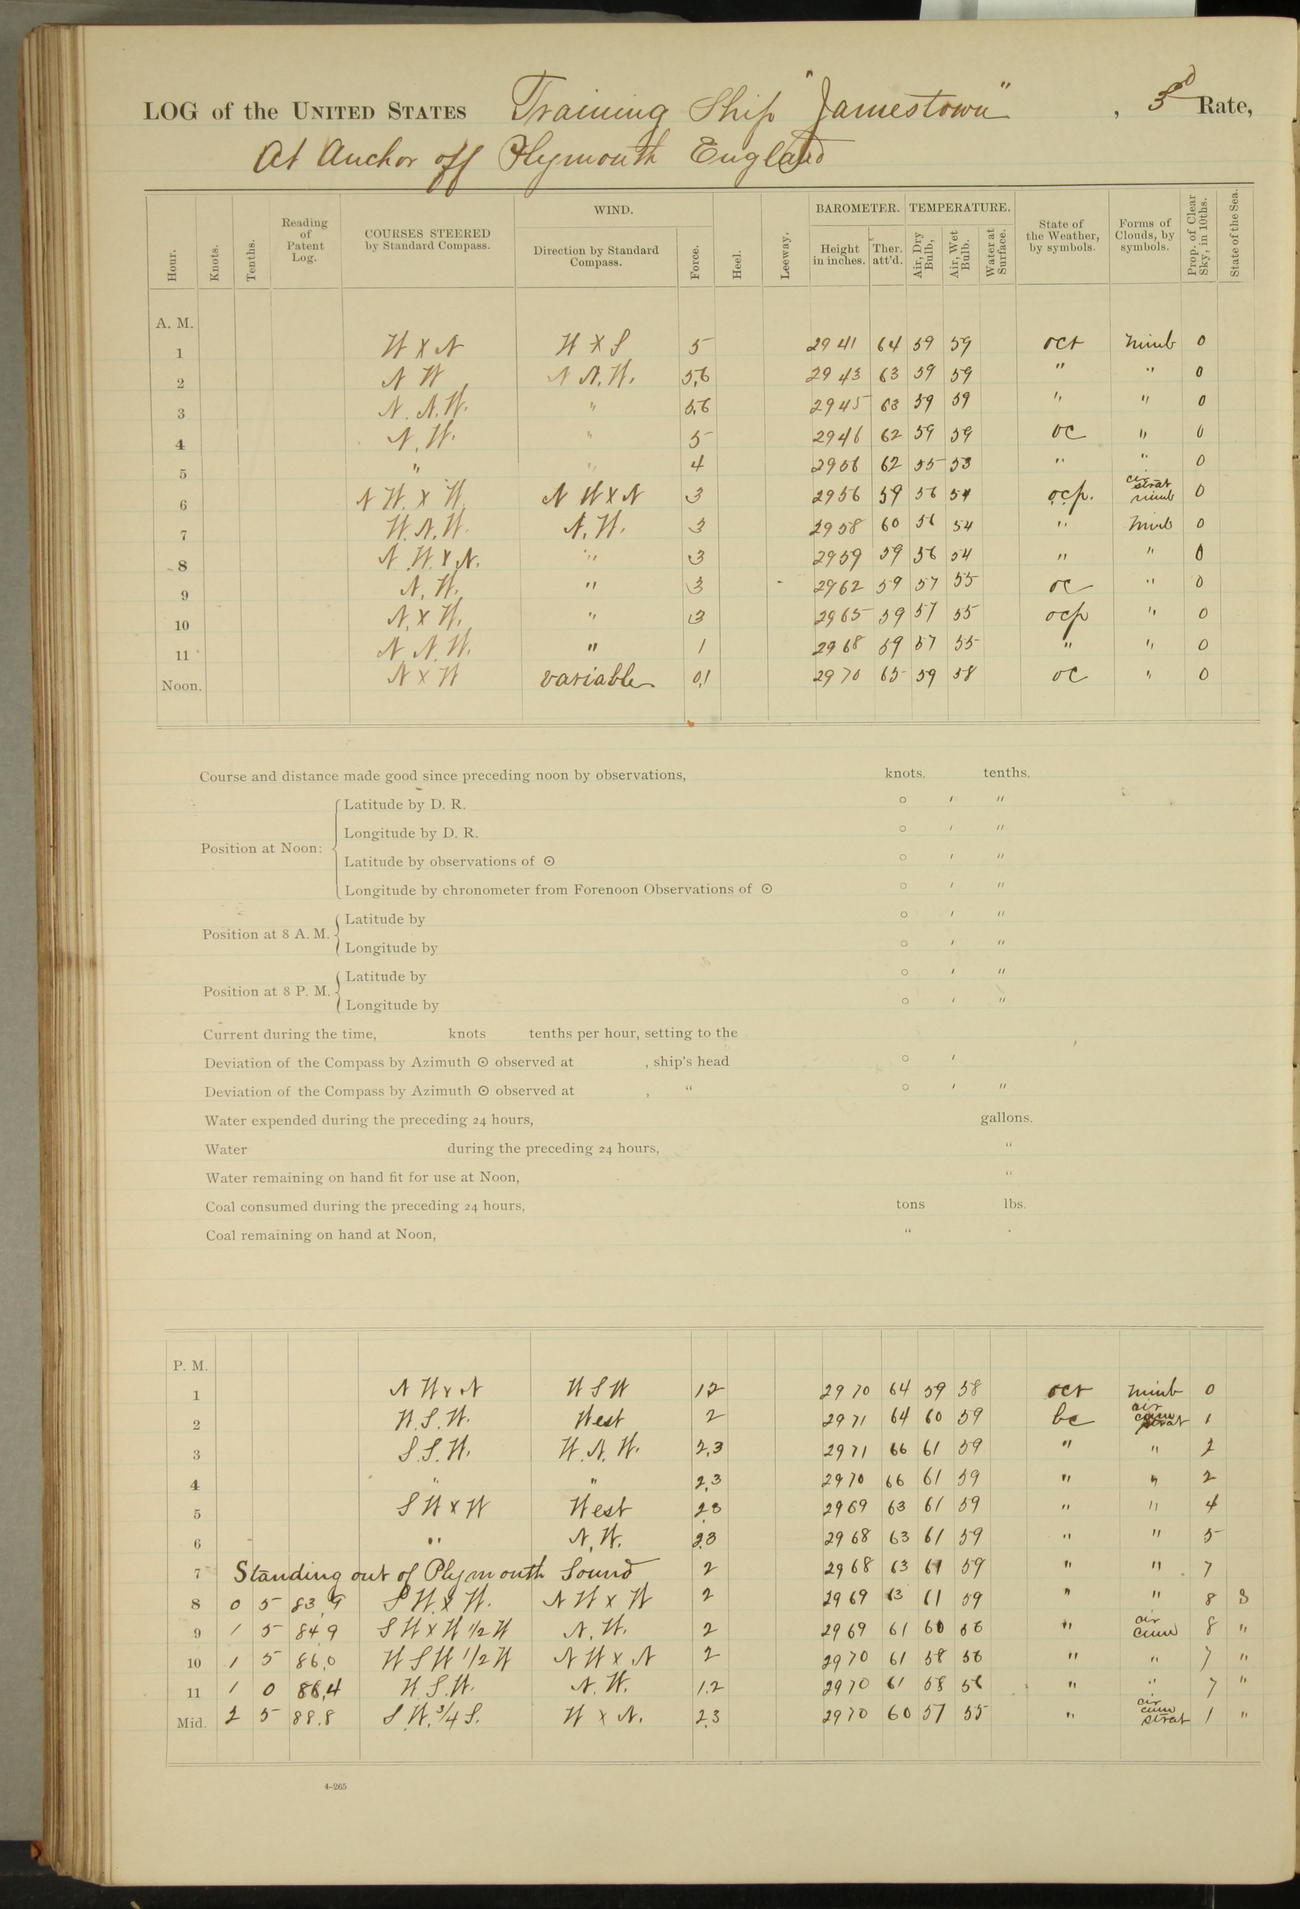 LOG of the UNITED STATES Training Ship "Jamestown", 3d Rate,
At Anchor off Plymouth England
Hour. Knots. Tenths. Reading of Patent Log. COURSES STEERED by Standard Compass. WIND. Direction by Standard Compass. Force. Heel. Leeway. BAROMETER. Height in inches. Ther. att'd. TEMPERATURE. Air, Dry Bulb, Air, Wet Bulb. Water at Surface. State of the Weather, by symbols. Forms of Clouds, by symbols. Prop. of Clear Sky, in 10ths. State of the Sea.
A. M.
1 W X N W X S 5 29 41 64 59 59 oct nimb 0
2 N W N N.W. 5,6 29 43 63 59 59 " " 0
3 N.N.W. " 5,6 29 45 63 59 59 " " 0
4 N.W. " 5 29 46 62 59 59 oc " 0
5 " " 4 29 56 62 55 53 " " 0
6 N W. X W. N W X N 3 29 56 59 56 54 ocp. cir strat nimb 0
7 W.N.W. N.W. 3 29 58 60 56 54 " Nimb 0
8 N.W X N. " 3 29 59 59 56 54 " " 0
9 N.W. " 3 29 62 59 57 55 oc " 0
10 N. X W. " 3 29 65 59 57 55 ocp " 0
11 N N.W. " 1 29 68 59 57 55 " " 0
Noon. N X W variable 0,1 29 70 65 59 58 oc " 0
Course and distance made good since preceding noon by observations, knots. tenths.
Position at Noon: Latitude by D. R. ° ′ ″
Longitude by D. R. ° ′ ″
Latitude by observations of ⊙ ° ′ ″
Longitude by chronometer from Forenoon Observations of ⊙ ° ′ ″
Position at 8 A. M. Latitude by ° ′ ″
Longitude by ° ′ ″
Position at 8 P. M. Latitude by ° ′ ″
Longitude by ° ′ ″
Current during the time, knots tenths per hour, setting to the
Deviation of the Compass by Azimuth ⊙ observed at , ship's head ° ′
Deviation of the Compass by Azimuth ⊙ observed at , " ° ′ ″
Water expended during the preceding 24 hours, gallons.
Water during the preceding 24 hours, "
Water remaining on hand fit for use at Noon, "
Coal consumed during the preceding 24 hours, tons lbs.
Coal remaining on hand at Noon, "
P. M.
1 N W X N W S W 1,2 29 70 64 59 58 oct nimb 0
2 W.S.W. West 2 29 71 64 60 59 bc cir cum strat 1
3 S.S.W. W.N.W. 2,3 29 71 66 61 59 " " 2
4 " " 2,3 29 70 66 61 59 " " 2
5 S W X W West 2,3 29 69 63 61 59 " " 4
6 " N.W. 2,3 29 68 63 61 59 " " 5
7 Standing out of Plymouth Sound 2 29 68 63 61 59 " " 7
8 0 5 83,9 S W. X W. N W X W 2 29 69 63 61 59 " " 8 S
9 1 5 84,9 S W X W 1/2 W N.W. 2 29 69 61 60 56 " cir cum 8 "
10 1 5 86,0 W S W 1/2 W N W X N 2 29 70 61 58 56 " " 7 "
11 1 0 86,4 W.S.W. N.W. 1,2 29 70 61 58 56 " " 7 "
Mid. 2 5 88,8 S.W. 3/4 S. W X N. 2,3 29 70 60 57 55 " cir cum strat 1 "
4-265